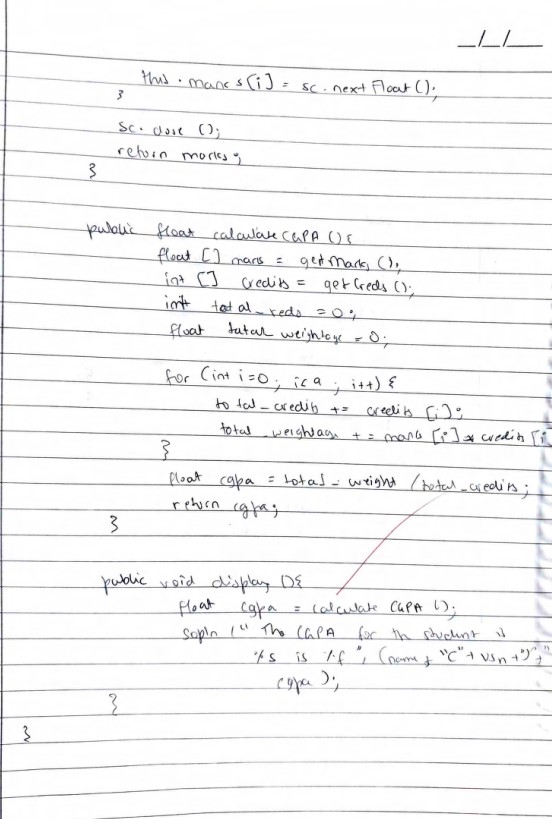 _/_/__
this.marks[i] = sc.nextFloat();
}
sc.close ();
return marks;
}
public float calculateCGPA () {
float [] marks = getMarks ();
int [] credits = getCreds ();
int total_creds = 0;
float total weightage = 0;
for (int i=0; i<a; i++) {
total_credits += credits [i];
total_weightage += marks [i] * credits [i
}
float cgpa = total_weight / total_credits;
return cgpa;
}
public void display () {
float cgpa = calculate CGPA ();
sopln (" The CGPA for the student is
%s is %f ", (name + "(" + usn + ")", "
cgpa );
}
}